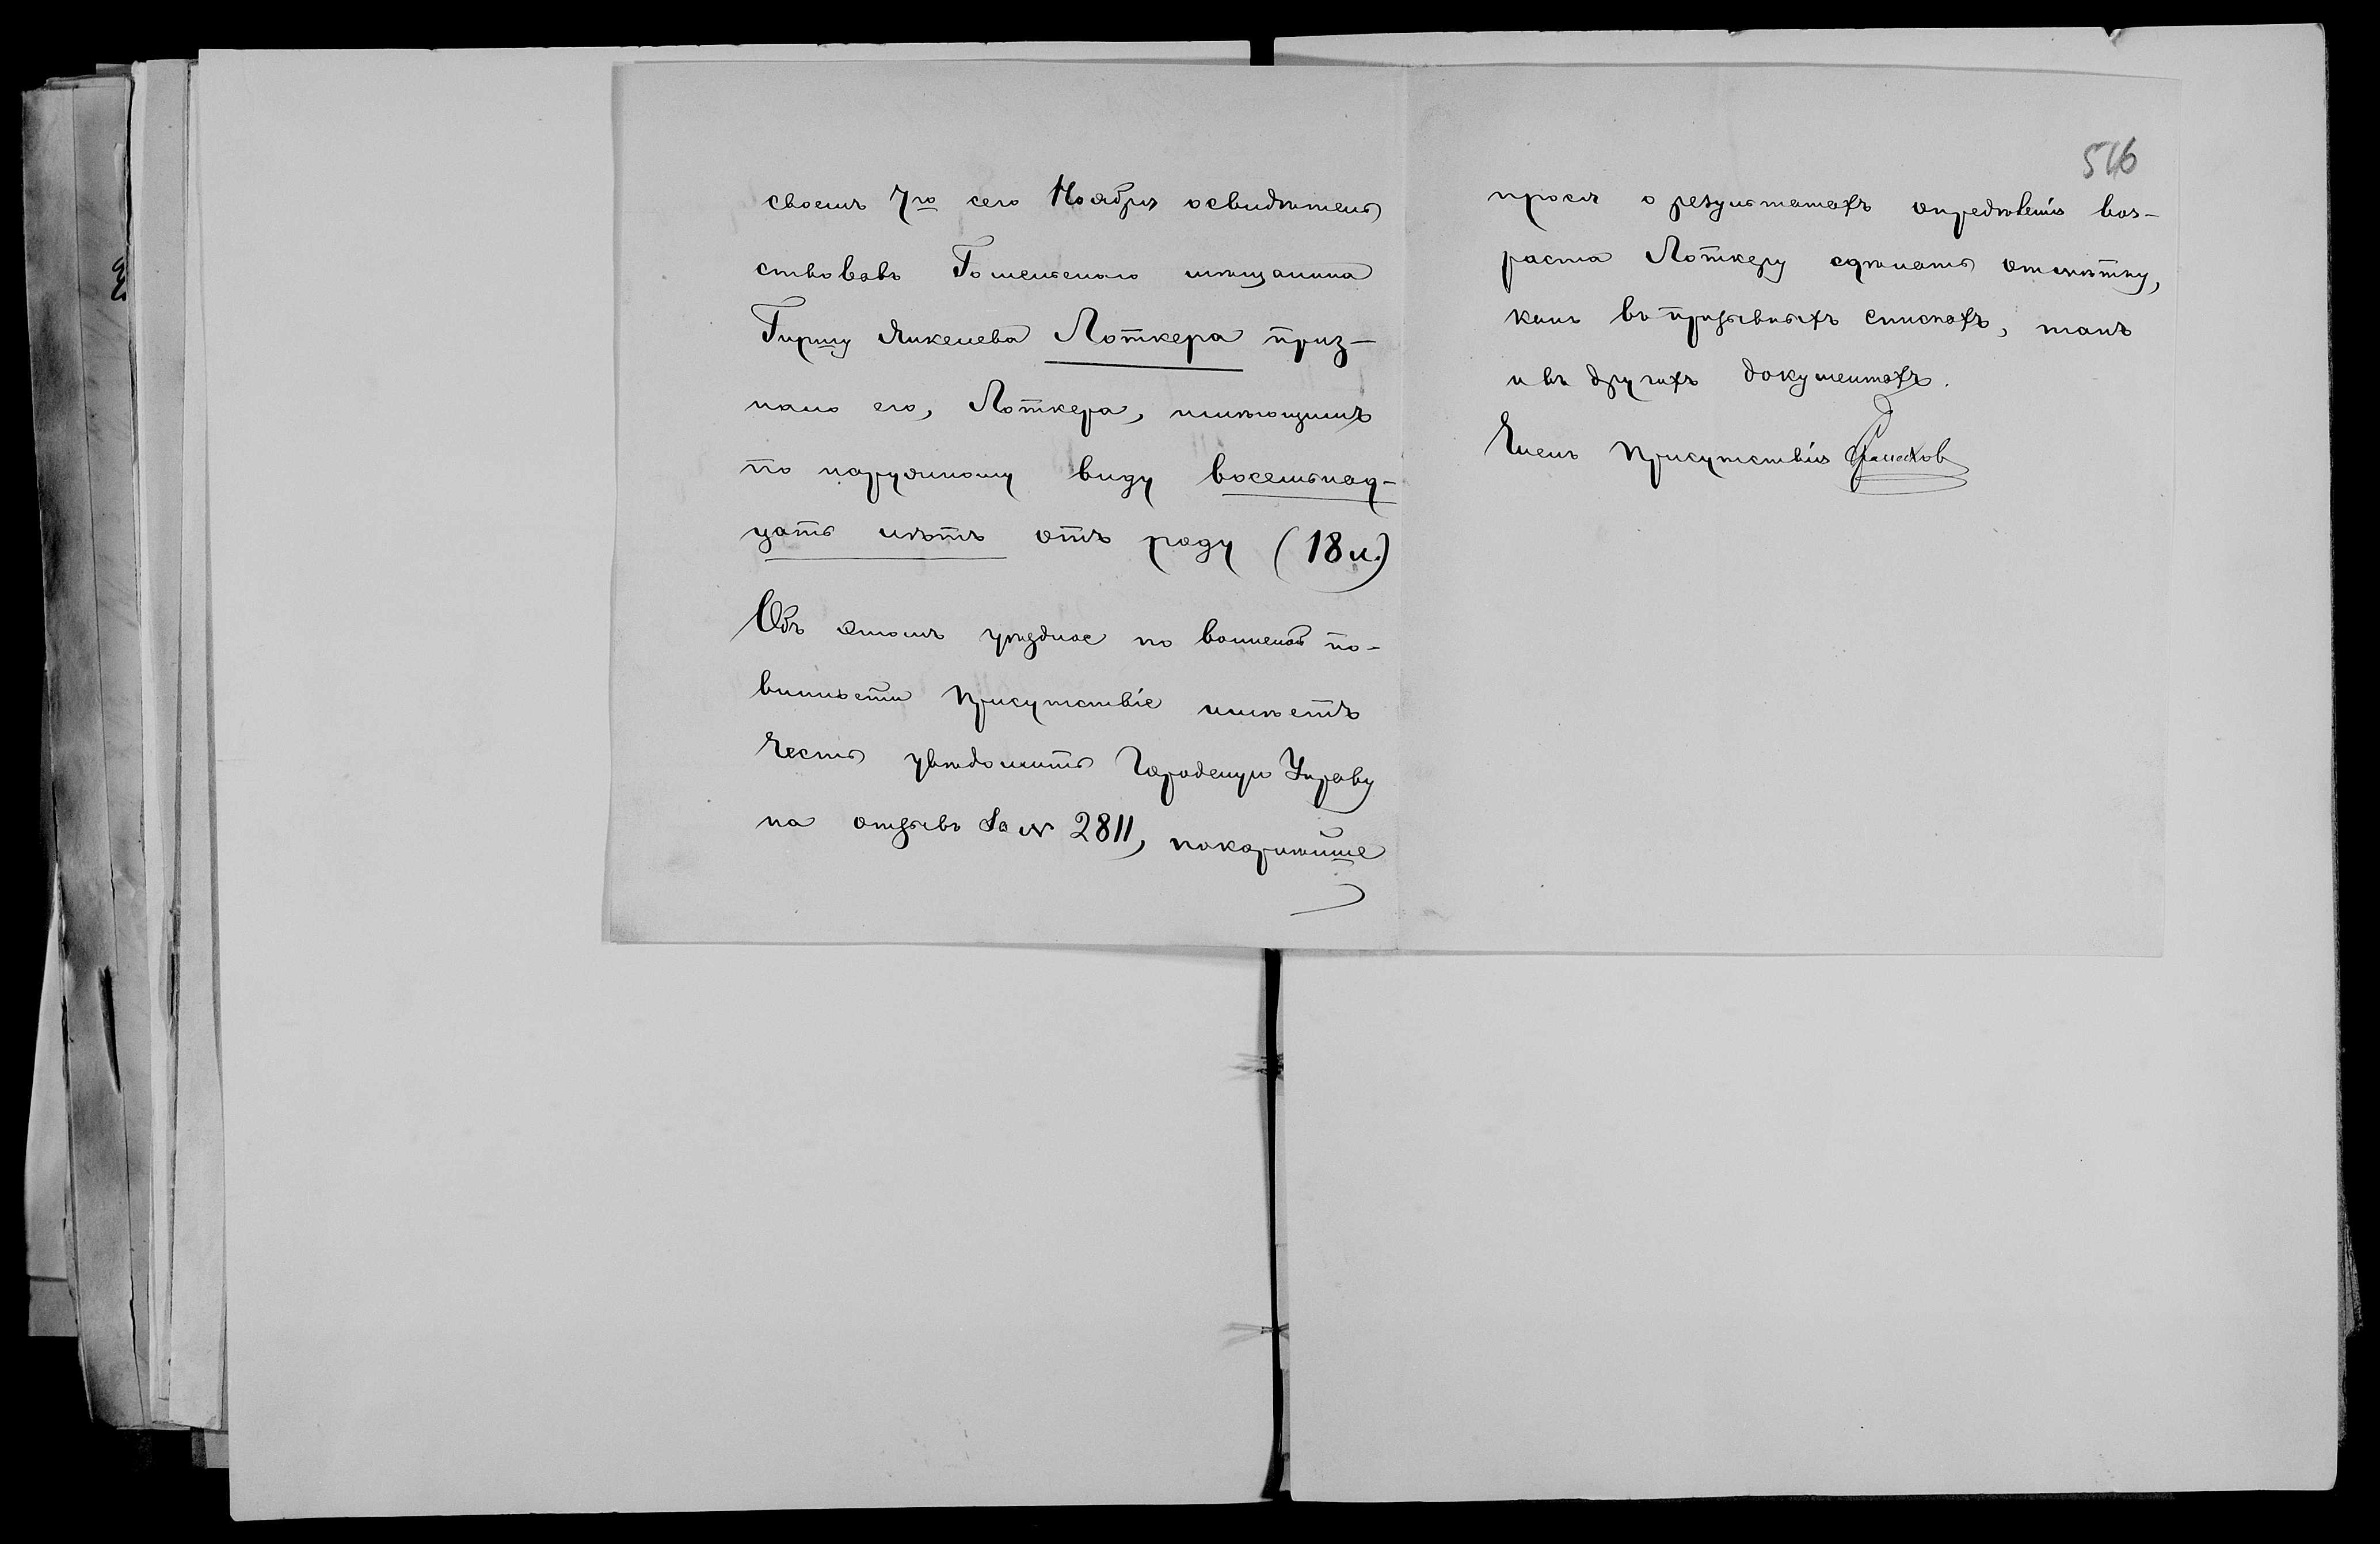 своемъ 7го сего Ноября освидѣтель
ствовавъ Гомельскаго мѣщанина
Гиршу Янкелева Лоткера приз-
нало его, Лоткера, имѣющимъ
по наружному виду восемьнад-
цать лѣтъ отъ роду (18 л.)
Объ этомъ уѣздное по воинской по-
винности Присутствіе имѣетъ
честь увѣдомить Городскую Управу
на отзывъ за № 2811, покорнѣйше
516
прося о результатахъ опредѣленія воз-
раста Лоткеру сдѣлать отмѣтку,
какъ въ призывныхъ спискахъ, такъ
и въ другихъ документахъ.
Членъ Присутствія